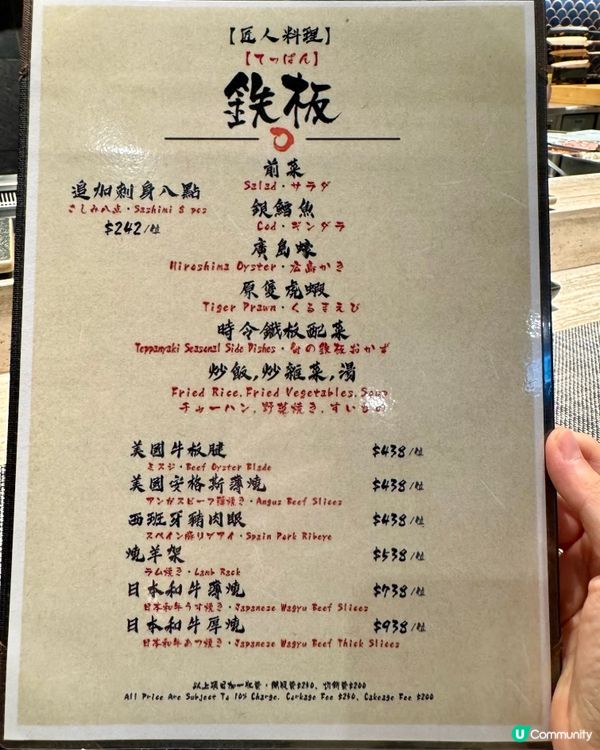 【匠人料理】
【てっぱん】
鉄板
前菜
Salad・サラダ
追加刺身八點
さしみ八点・Sashimi 8 pcs
$242/位
銀鱈魚
Cod・ギンダラ
廣島蠔
Hiroshima Oyster・広島かき
原隻虎蝦
Tiger Prawn・くるまえび
時令鐵板配菜
Teppanyaki Seasonal Side Dishes・旬の鉄板おかず
炒飯,炒雜菜,湯
Fried Rice,Fried Vegetables,Soup
チャーハン,野菜焼き,すいもの
美國牛板腱 $438/位
ミスジ・Beef Oyster Blade
美國安格斯薄燒 $438/位
アンガスビーフ薄焼き・Angus Beef Slices
西班牙豬肉眼 $438/位
スペイン豚リブアイ・Spain Pork Ribeye
燒羊架 $538/位
ラム焼き・Lamb Rack
日本和牛薄燒 $738/位
日本和牛うす焼き・Japanese Wagyu Beef Slices
日本和牛厚燒 $938/位
日本和牛あつ焼き・Japanese Wagyu Beef Thick Slices
以上項目加一服務,開瓶費$250、切餅費$200
All Price Are Subject To 10% Charge, Corkage Fee $250, Cakeage Fee $200
U Community